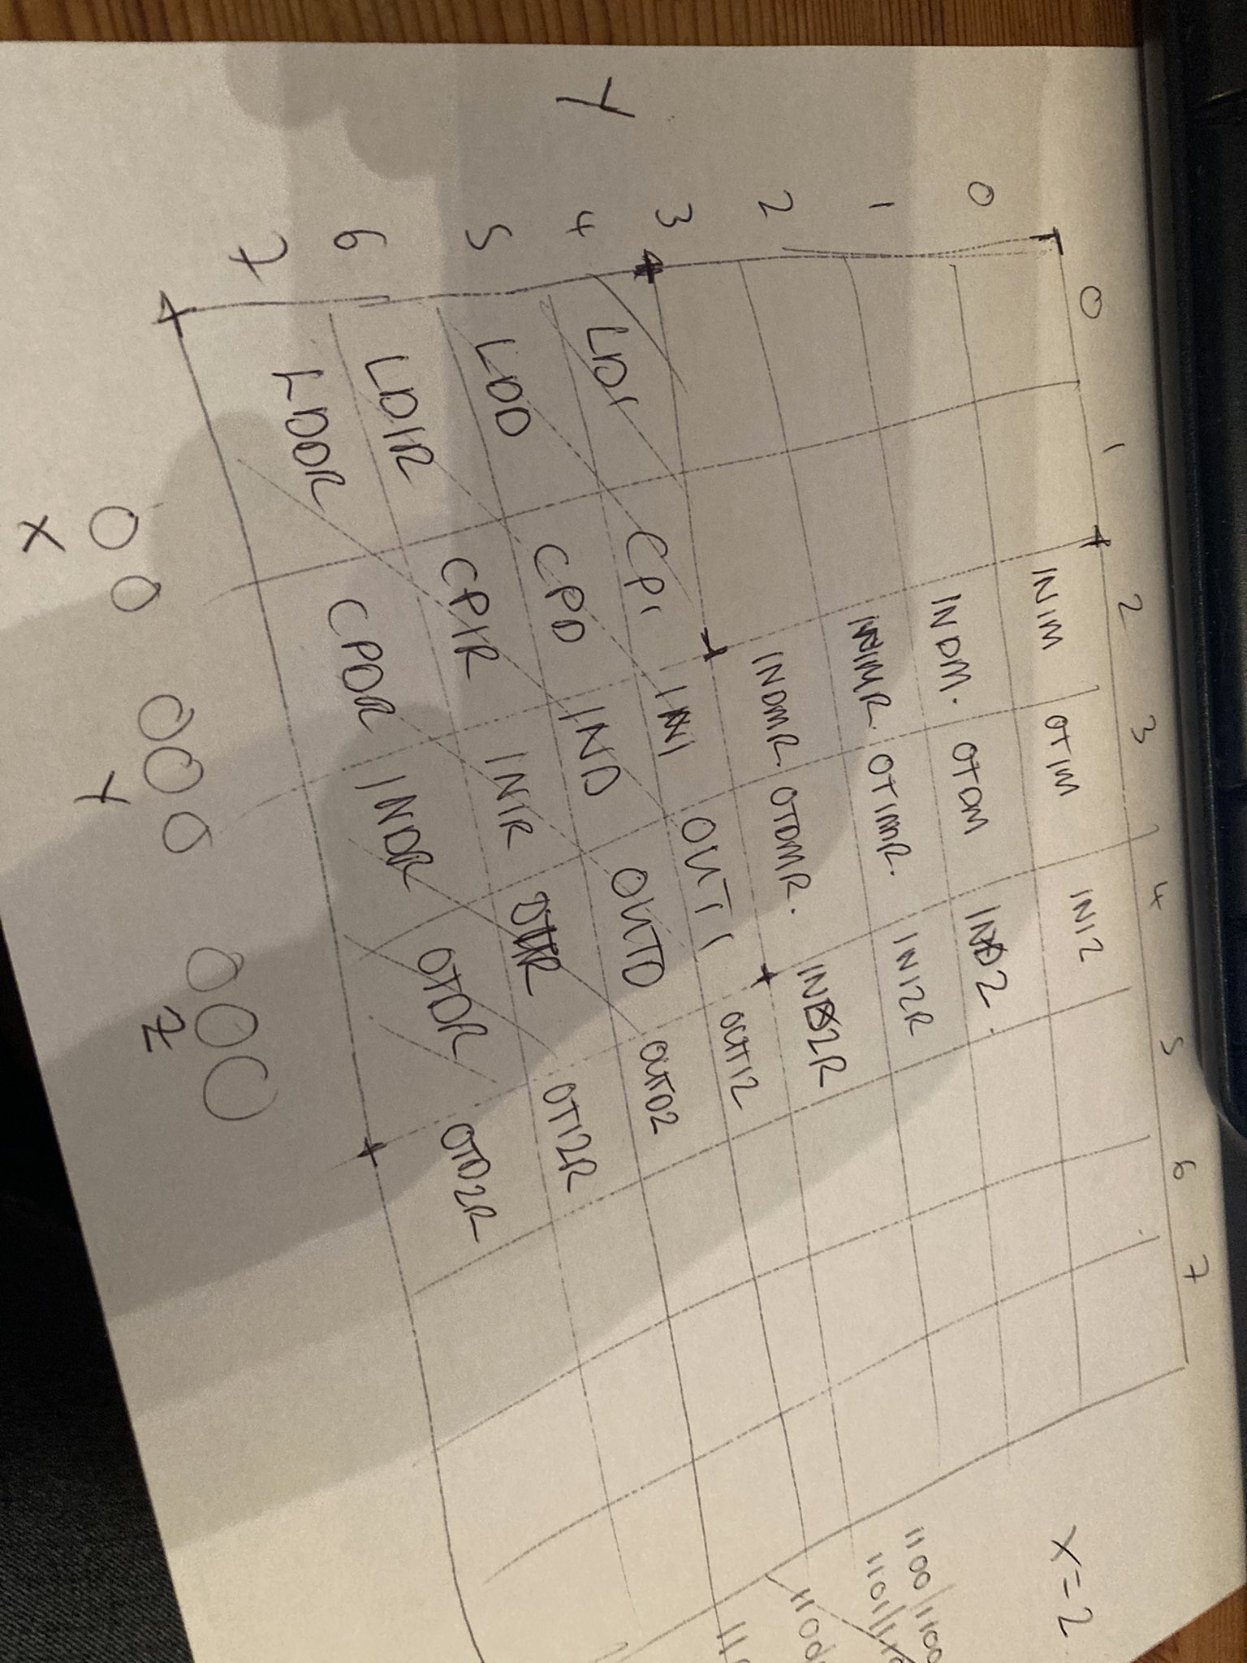 X=2
0 1 2 3 4 5 6 7
0 INIM OTIM INI2
1 INDM. OTDM IND2.
2 INIMR. OTIMR. INI2R
3 INDMR. OTDMR. IND2R
4 LDI CPI INI OUTI OUTI2
Y
5 LDD CPD IND OUTD OUTD2
6 LDIR CPIR INIR OTIR OTI2R
7 LDDR CPDR INDR OTDR OTD2R
X Y Z
1100/1100